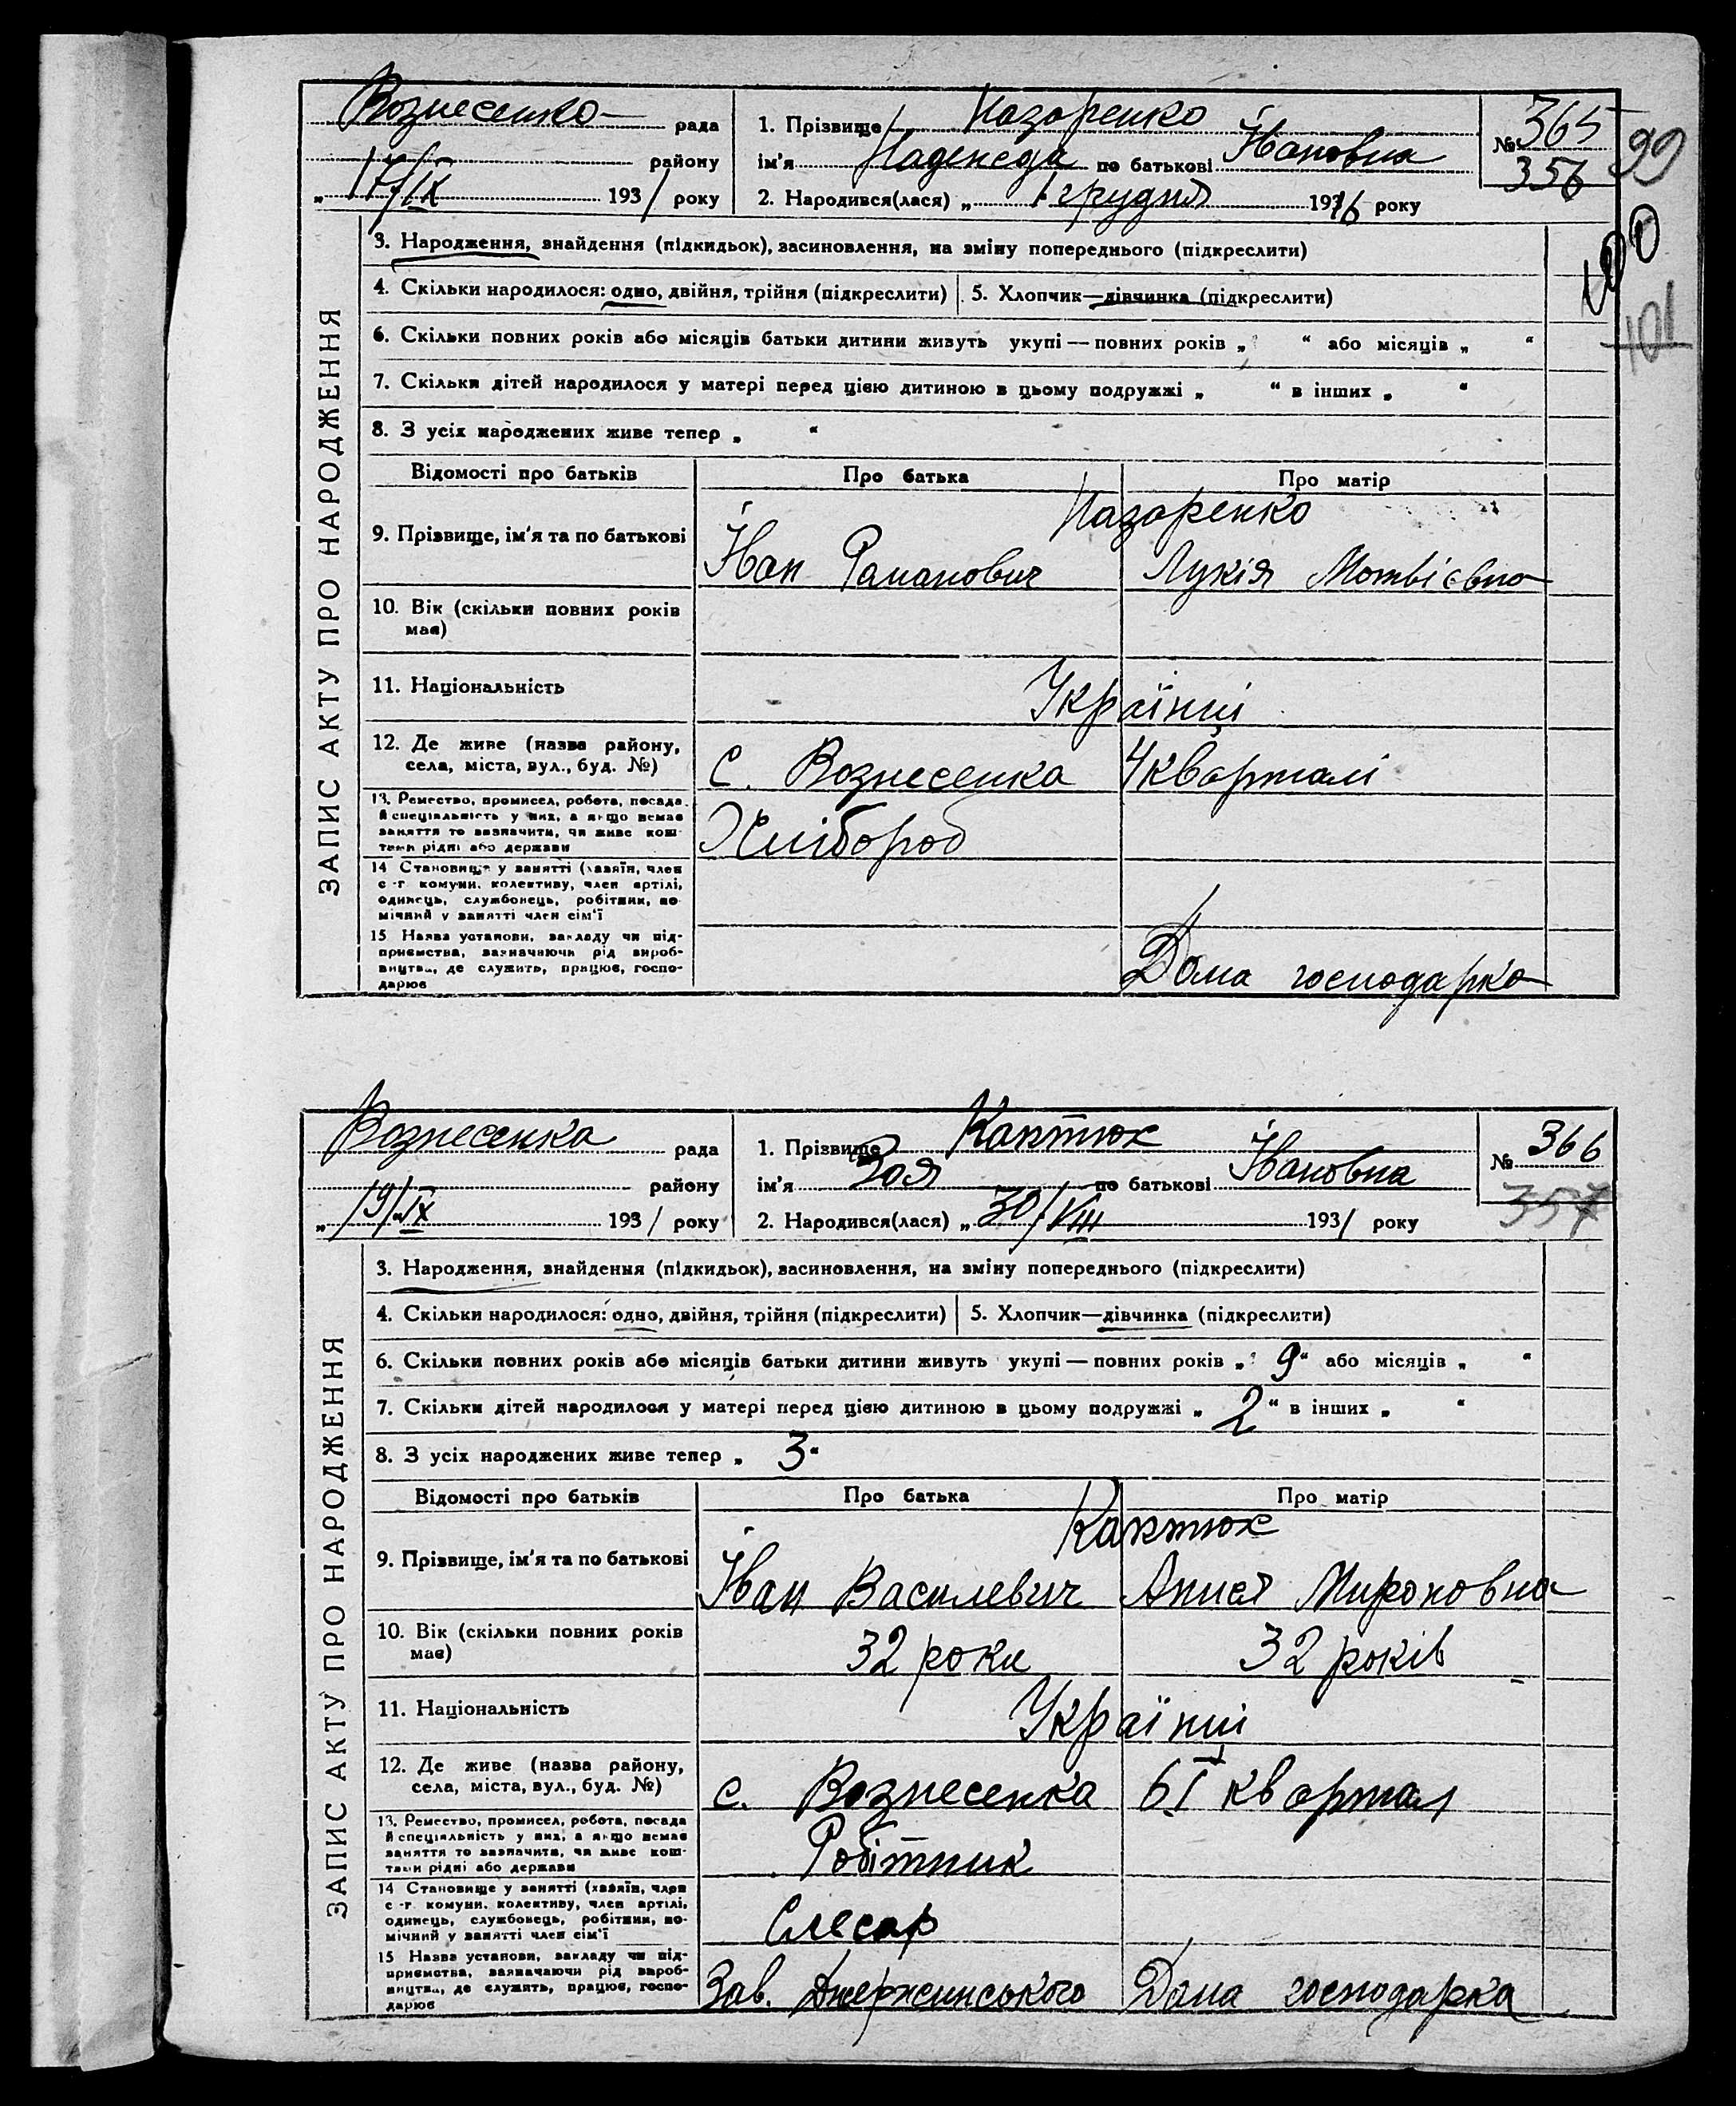 Вознесенка рада
району
„17/IX 1931 року
1. Прізвище Назаренко
ім'я Надежда по батькові Івановна
2. Народився(лася) „1 грудня 1916 року
№ 365
356
99
100
101
ЗАПИС АКТУ ПРО НАРОДЖЕННЯ
3. Народження, знайдення (підкидьок), засиновлення, на зміну попереднього (підкреслити)
4. Скільки народилося: одно, двійня, трійня (підкреслити) 5. Хлопчик—дівчинка (підкреслити)
6. Скільки повних років або місяців батьки дитини живуть укупі — повних років „ “ або місяців „ “
7. Скільки дітей народилося у матері перед цією дитиною в цьому подружжі „ “ в інших „ “
8. З усіх народжених живе тепер „ “
Відомості про батьків Про батька Про матір
Назаренко
9. Прізвище, ім'я та по батькові Іван Раманович Лукія Матвієвна
10. Вік (скільки повних років
має)
11. Національність Українці
12. Де живе (назва району,
села, міста, вул., буд. №) С. Вознесенка 4 кварталі
13. Ремество, промисел, робота, посада
й спеціяльність у них, а якщо немає
заняття то зазначити, чи живе кош-
тами рідні або держави Хлібороб
14 Становище у занятті (хазяїн, член
с.-г. комуни, колективу, член артілі,
одинець, службовець, робітник, по-
мічний у занятті член сім'ї
15 Назва установи, закладу чи під-
приємства, зазначаючи рід вироб-
ництва, де служить, працює, госпо-
дарює Дома господарка
Вознесенка рада
району
„19/IX 1931 року
1. Прізвище Каптюх
ім'я Зоя по батькові Івановна
2. Народився(лася) „30/VIII 1931 року
№ 366
357
ЗАПИС АКТУ ПРО НАРОДЖЕННЯ
3. Народження, знайдення (підкидьок), засиновлення, на зміну попереднього (підкреслити)
4. Скільки народилося: одно, двійня, трійня (підкреслити) 5. Хлопчик—дівчинка (підкреслити)
6. Скільки повних років або місяців батьки дитини живуть укупі — повних років „ 9 “ або місяців „ “
7. Скільки дітей народилося у матері перед цією дитиною в цьому подружжі „ 2 “ в інших „ “
8. З усіх народжених живе тепер „ 3 “
Відомості про батьків Про батька Про матір
Каптюх
9. Прізвище, ім'я та по батькові Іван Василевич Анися Мироновна
10. Вік (скільки повних років
має) 32 роки 32 років
11. Національність Українці
12. Де живе (назва району,
села, міста, вул., буд. №) с. Вознесенка 6І квартал
13. Ремество, промисел, робота, посада
й спеціяльність у них, а якщо немає
заняття то зазначити, чи живе кош-
тами рідні або держави Робітник
14 Становище у занятті (хазяїн, член
с.-г. комуни, колективу, член артілі,
одинець, службовець, робітник, по-
мічний у занятті член сім'ї Слесар
15 Назва установи, закладу чи під-
приємства, зазначаючи рід вироб-
ництва, де служить, працює, госпо-
дарює Зав. Джержинського Дома господарка